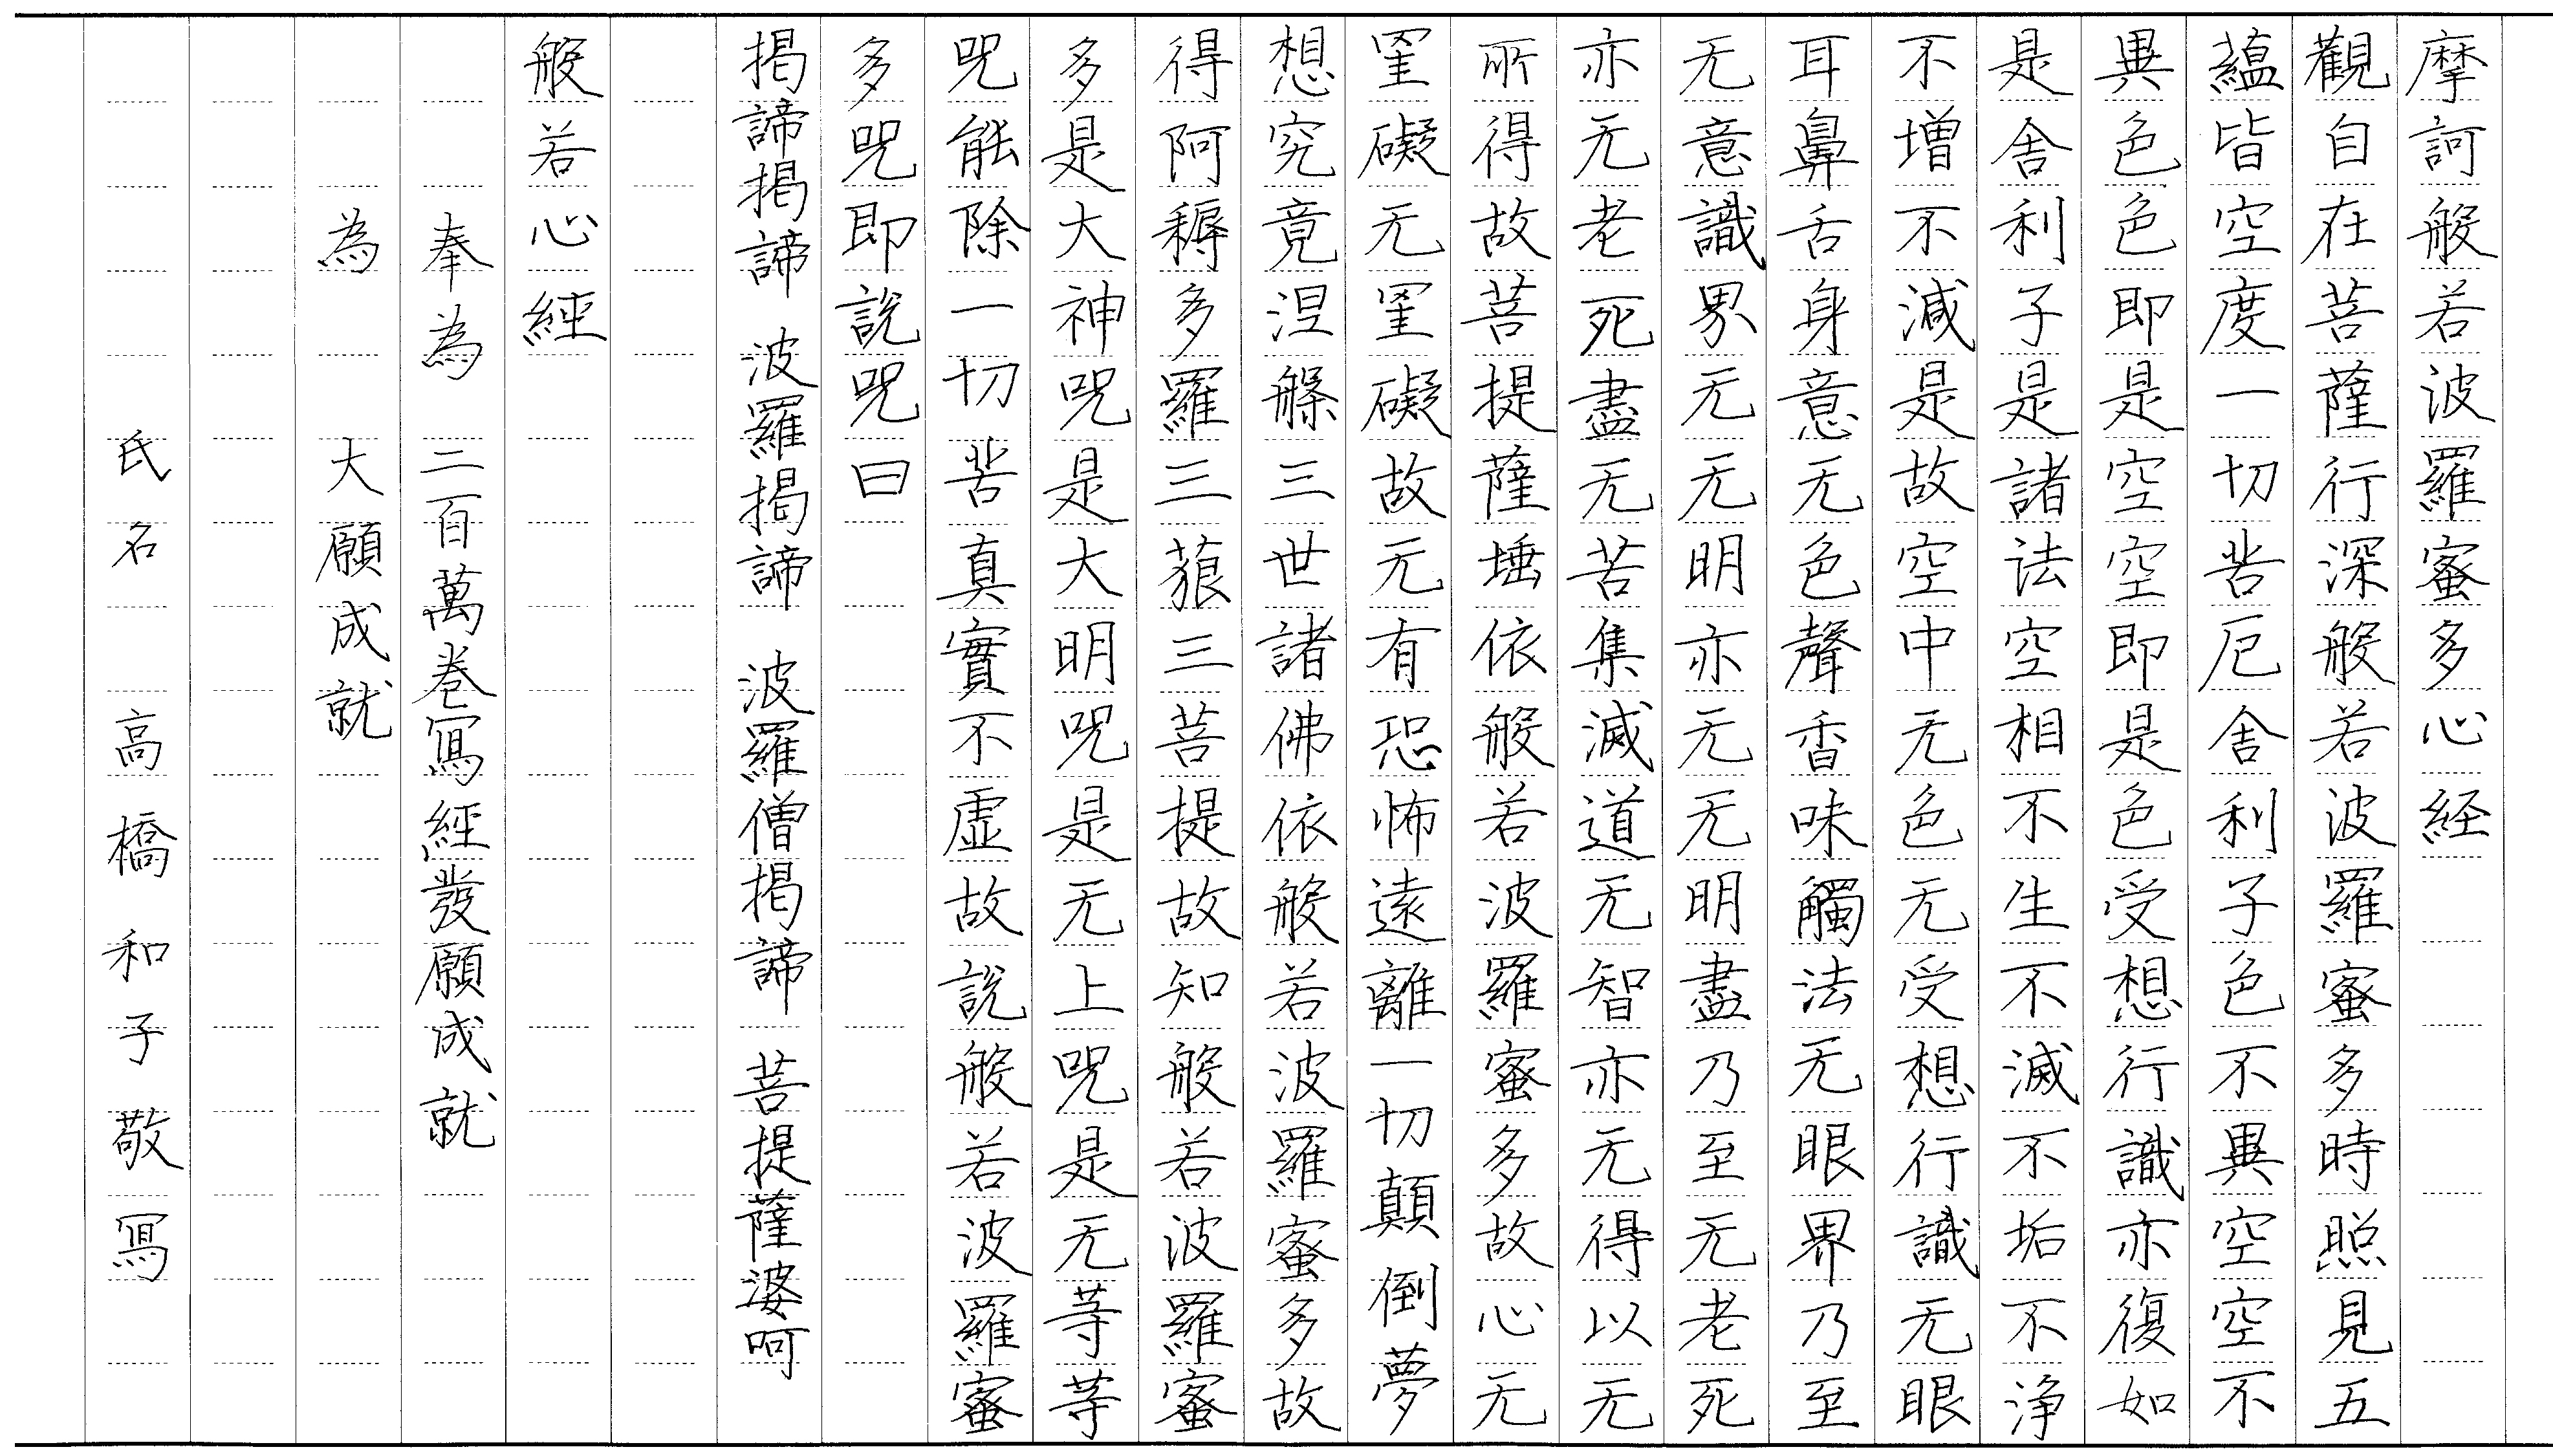 摩訶般若波羅蜜多心経
觀自在菩薩行深般若波羅蜜多時照見五
蘊皆空度一切苦厄舎利子色不異空空不
異色色即是空空即是色受想行識亦復如
是舎利子是諸法空相不生不滅不垢不浄
不増不減是故空中无色无受想行識无眼
耳鼻舌身意无色聲香味觸法无眼界乃至
无意識界无无明亦无无明盡乃至无老死
亦无老死盡无苦集滅道无智亦无得以无
所得故菩提薩埵依般若波羅蜜多故心无
罣礙无罣礙故无有恐怖遠離一切顛倒夢
想究竟涅槃三世諸佛依般若波羅蜜多故
得阿耨多羅三藐三菩提故知般若波羅蜜
多是大神咒是大明咒是无上咒是无等等
咒能除一切苦真實不虚故説般若波羅蜜
多咒即説咒曰
揭諦揭諦 波羅揭諦 波羅僧揭諦 菩提薩婆呵
般若心經
奉為 二百萬巻寫經發願成就
為 大願成就
氏名 高橋和子敬寫